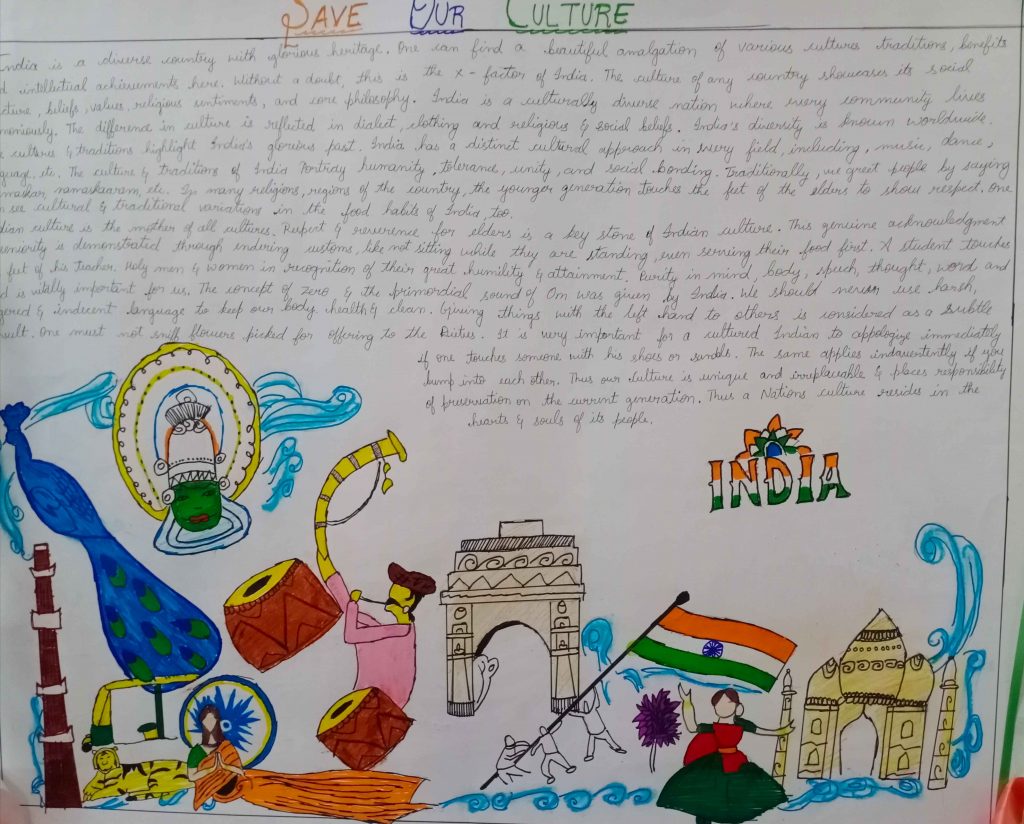 SAVE OUR CULTURE
India is a diverse country with glorious heritage. One can find a beautiful amalgation of various cultures traditions, benefits
intellectual achievements here. Without a doubt, this is the x-factor of India. The culture of any country showcases its social
beliefs, values, religious sentiments, and core philosophy. India is a culturally diverse nation where every community lives
The difference in culture is reflected in dialect, clothing and religious & social beliefs. India's diversity is known worldwide.
cultures & traditions highlight India's glorious past. India has a distinct cultural approach in every field, including, music, dance,
etc. The culture & traditions of India Portray humanity, tolerance, unity, and social bonding. Traditionally, we greet people by saying
namaskaaram, etc. In many religions, regions of the country, the younger generation touches the feet of the elders to show respect. One
see cultural & traditional variations in the food habits of India, too.
culture is the mother of all cultures. Respect & reverence for elders is a key stone of Indian culture. This genuine acknowledgment
is demonstrated through enduring customs, like not sitting while they are standing, even serving their food first. A student touches
feet of his Teacher. Holy men & women in recognition of their great humility & attainment. Purity in mind, body, speech, thought, word and
is vitally important for us. The concept of zero & the primordial sound of Om was given by India. We should never use harsh,
& indecent language to keep our body health & clean. Giving things with the left hand to others is considered as a subtle
One must not sniff flowers picked for offering to the Deities. It is very important for a cultured Indian to appologize immediately
if one touches someone with his shoes or sandals. The same applies if you
bump into each other. Thus our culture is unique and & places responsibility
of preservation on the current generation. Thus a Nations culture resides in the
hearts & souls of its people.
INDIA